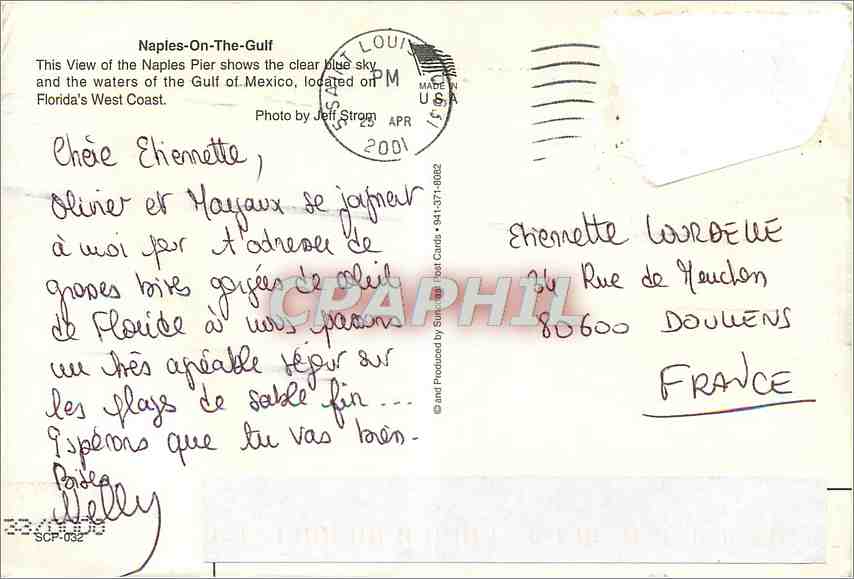 Naples-On-The-Gulf
This View of the Naples Pier shows the clear blue sky
and the waters of the Gulf of Mexico, located on
Florida's West Coast.
Photo by Jeff Strom
SAINT LOUIS
PM
25 APR
2001
MADE IN
USA
Chère Etiennette,
Olivier et se joignent
à moi pour t'adresser de
grosses bises gorgées de soleil
de Floride où nous passons
un très agréable séjour sur
les plages de sable fin ...
Espérons que tu vas bien.
Bises
Nelly
SCP-032
© and Produced by Suncoast Post Cards • 941-371-8082
CPAPHIL
Etiennette LOURDELLE
34 Rue de
80600 DOULLENS
FRANCE